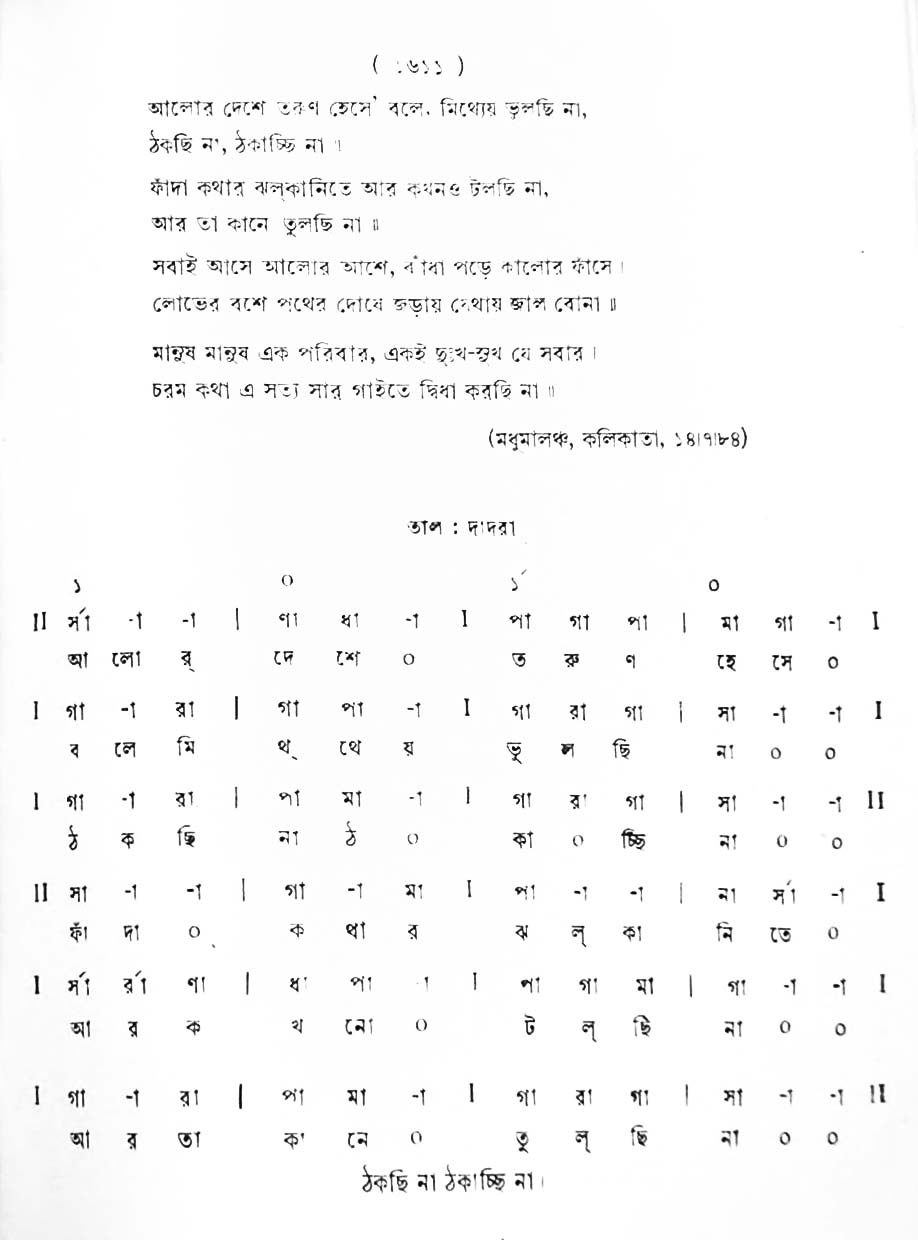 ( ১৬১১ )
আলোর দেশে তরুণ হেসে' বলে, মিথ্যেয় ভুলছি না,
ঠকছি না, ঠকাচ্ছি না ।
ফাঁদা কথার ঝল্‌কানিতে আর কখনও টলছি না,
আর তা কানে তুলছি না ॥
সবাই আসে আলোর আশে, বাঁধা পড়ে কালোর ফাঁসে ।
লোভের বশে পথের দোষে জড়ায় সেথায় জাল বোনা ॥
মানুষ মানুষ এক পরিবার, একই দুঃখ-সুখ যে সবার ।
চরম কথা এ সত্য সার গাইতে দ্বিধা করছি না ॥
(মধুমালঞ্চ, কলিকাতা, ১৪।৭।৮৪)
তাল : দাদরা
১ ০ ১´ ০
II র্সা -া -া | ণা ধা -া I পা গা পা | মা গা -া I
আ লো র্ দে শে ০ ত রু ণ হে সে ০
I গা -া রা | গা পা -া I গা রা গা | সা -া -া I
ব লে মি থ্ থে য় ভু ল ছি না ০ ০
I গা -া রা | পা মা -া I গা রা গা | সা -া -া II
ঠ ক ছি না ঠ ০ কা ০ চ্ছি না ০ ০
II সা -া -া | গা -া মা I পা -া -া | না র্সা -া I
ফাঁ দা ০ ক থা র ঝ ল্ কা নি তে ০
I র্সা র্রা ণা | ধা পা -া I পা গা মা | গা -া -া I
আ র ক খ নো ০ ট ল্ ছি না ০ ০
I গা -া রা | পা মা -া I গা রা গা | সা -া -া II
আ র তা কা নে ০ তু ল্ ছি না ০ ০
ঠকছি না ঠকাচ্ছি না ।